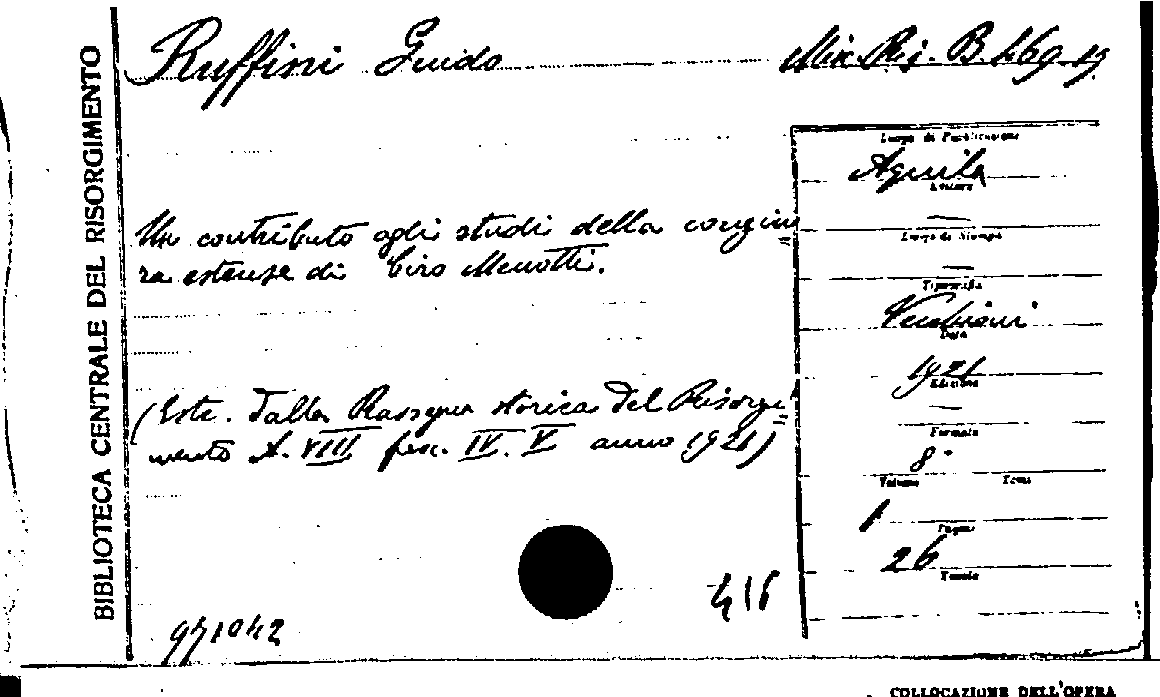 BIBLIOTECA CENTRALE DEL RISORGIMENTO
Ruffini Guido
Mix. Ris. B. 469. 19
Un contributo agli studi della congiu
ra estense di Ciro Menotti.
(Estr. dalla Rassegna storica del Risorgi
mento A. VIII fasc. IV. V anno 1921)
416
971042
Luogo di Pubblicazione
Aquila
Editore
Luogo di Stampa
Tipografia
Vecchioni
Data
1921
Edizione
Formato
8°
Volume Tomo
1
Pagine
26
Tavole
COLLOCAZIONE DELL'OPERA